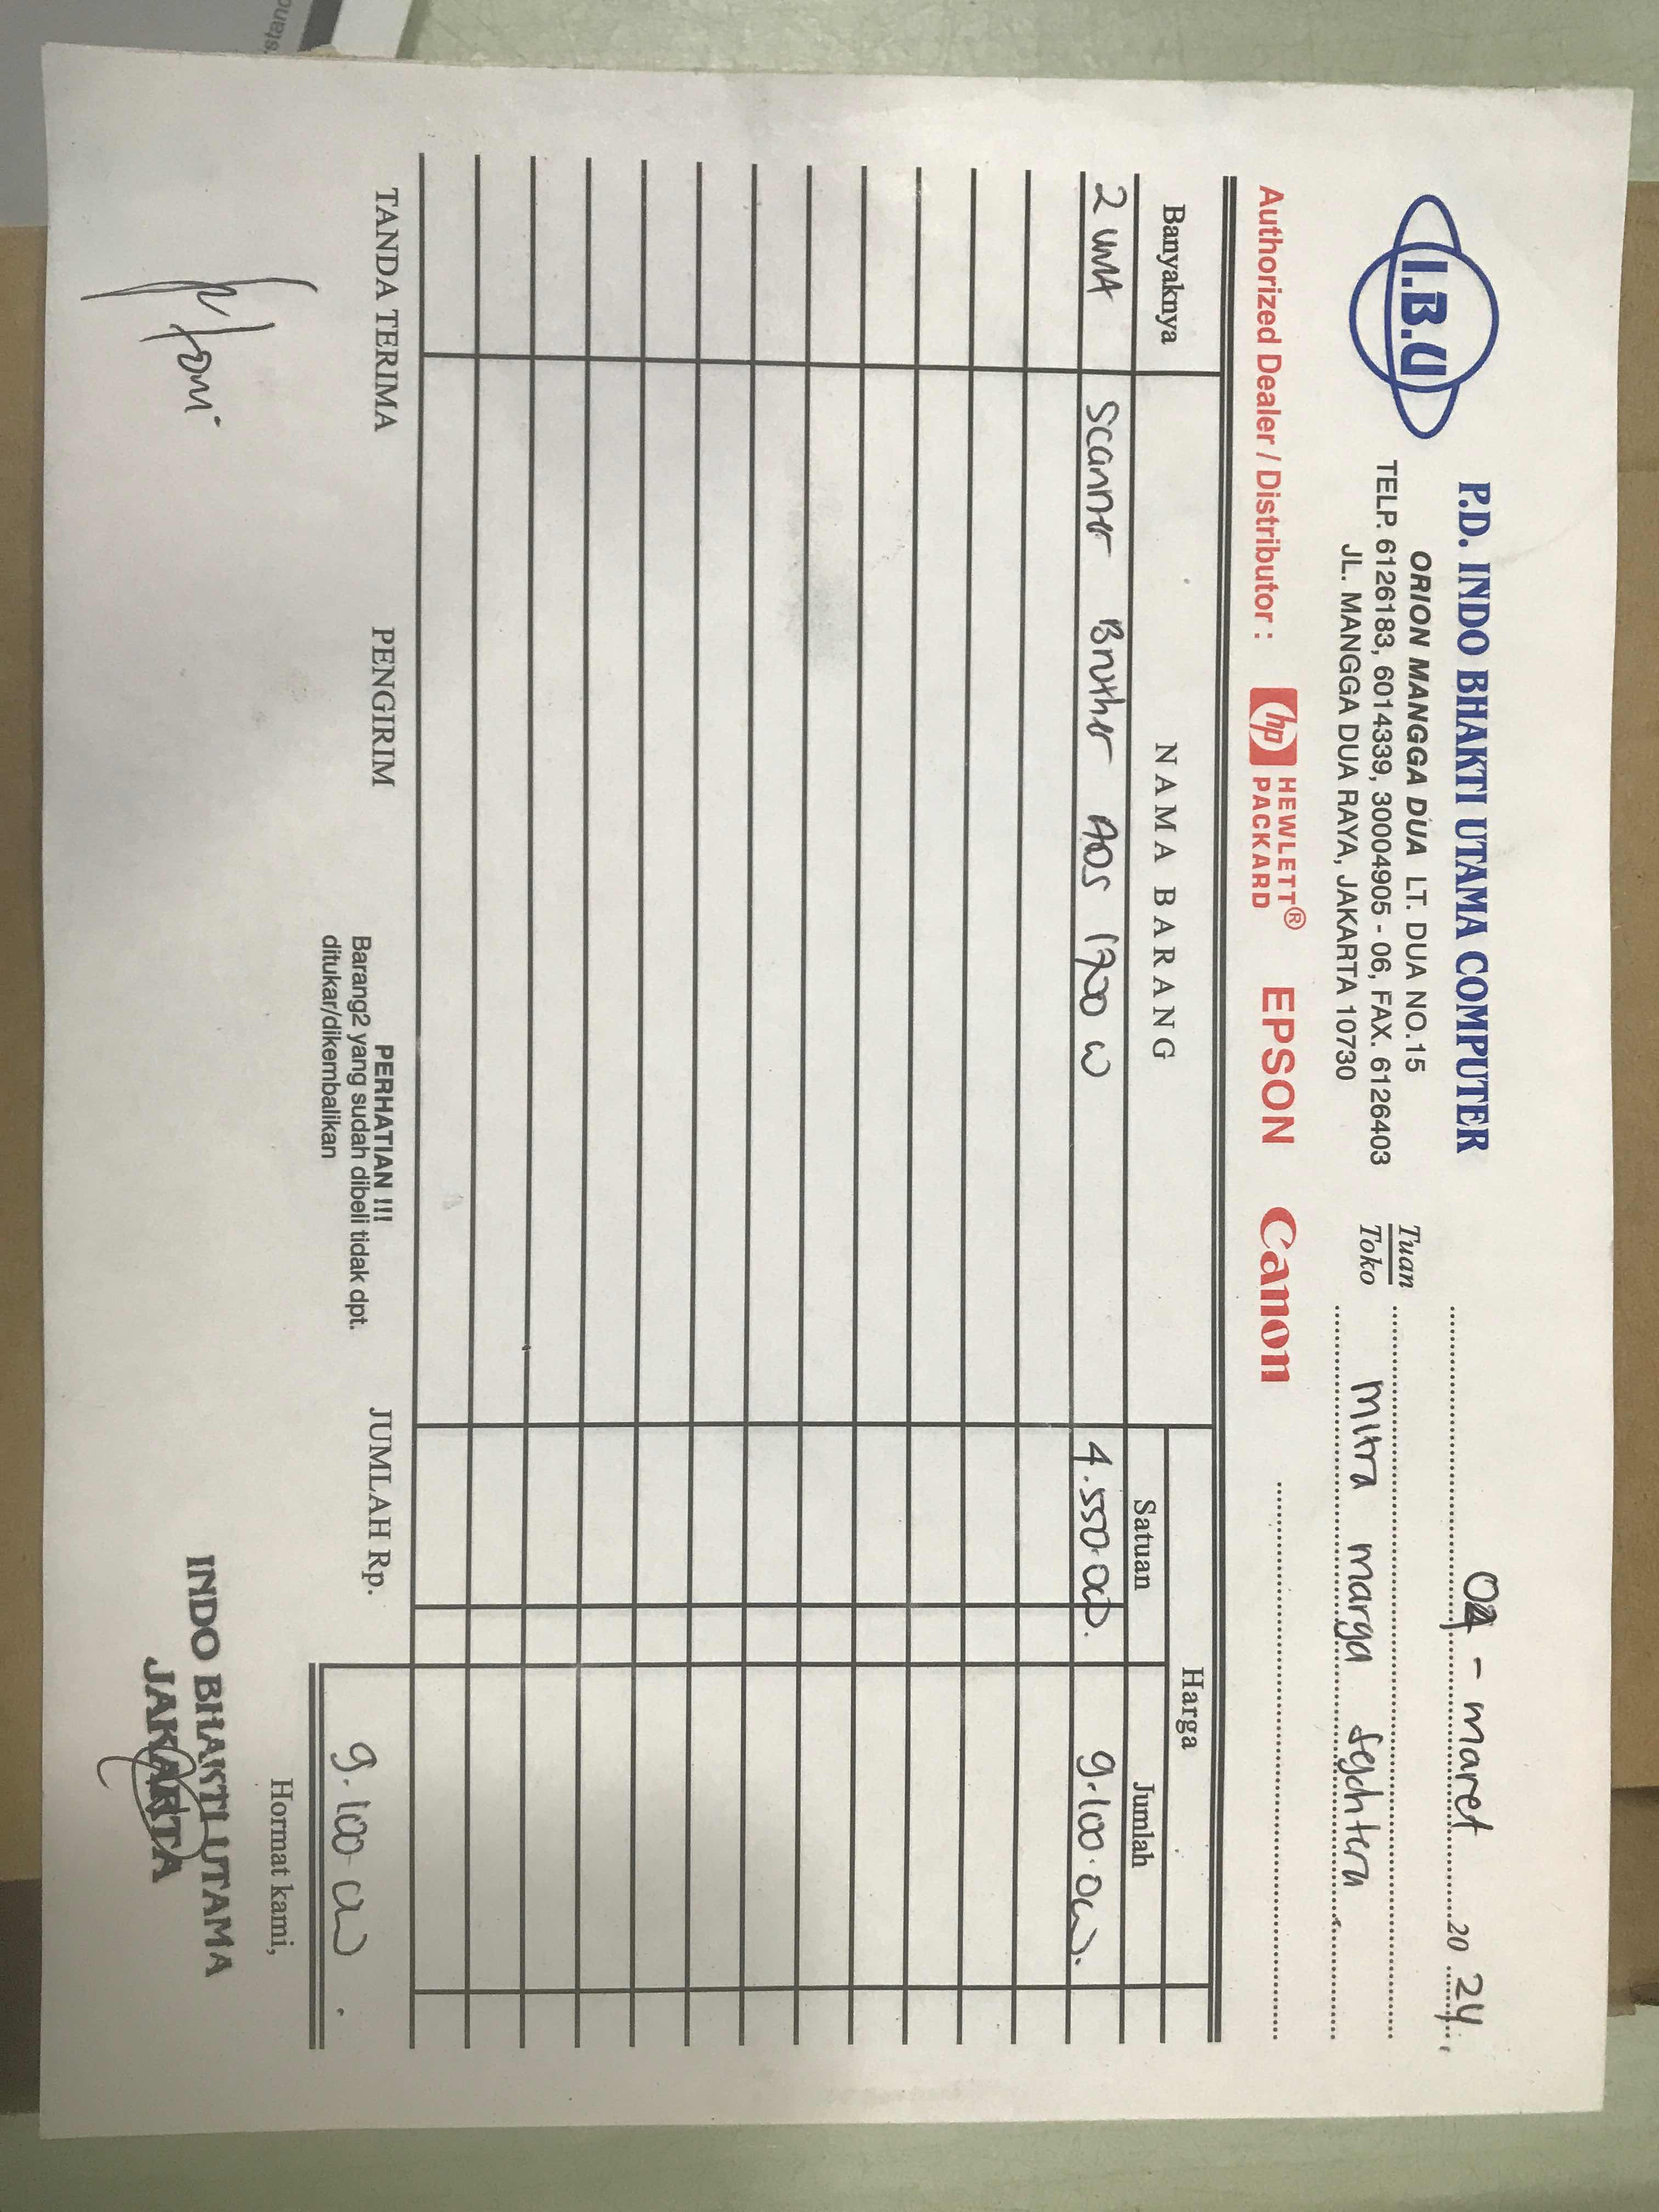 I.B.U
P.D. INDO BHAKTI UTAMA COMPUTER
ORION MANGGA DUA LT. DUA NO.15
TELP. 6126183, 6014339, 30004905 - 06, FAX. 6126403
JL. MANGGA DUA RAYA, JAKARTA 10730
04 - maret 20 24
Tuan
Toko
mitra marga sejahtera
Authorized Dealer / Distributor : hp HEWLETT® PACKARD EPSON Canon
Banyaknya NAMA BARANG Harga
Satuan Jumlah
2 unit Scanner Brother ADS 1700 W 4.550.000. 9.100.000.
TANDA TERIMA PENGIRIM
PERHATIAN !!!
Barang2 yang sudah dibeli tidak dpt.
ditukar/dikembalikan
JUMLAH Rp. 9.100.000.
Hormat kami,
INDO BHAKTI UTAMA
JAKARTA